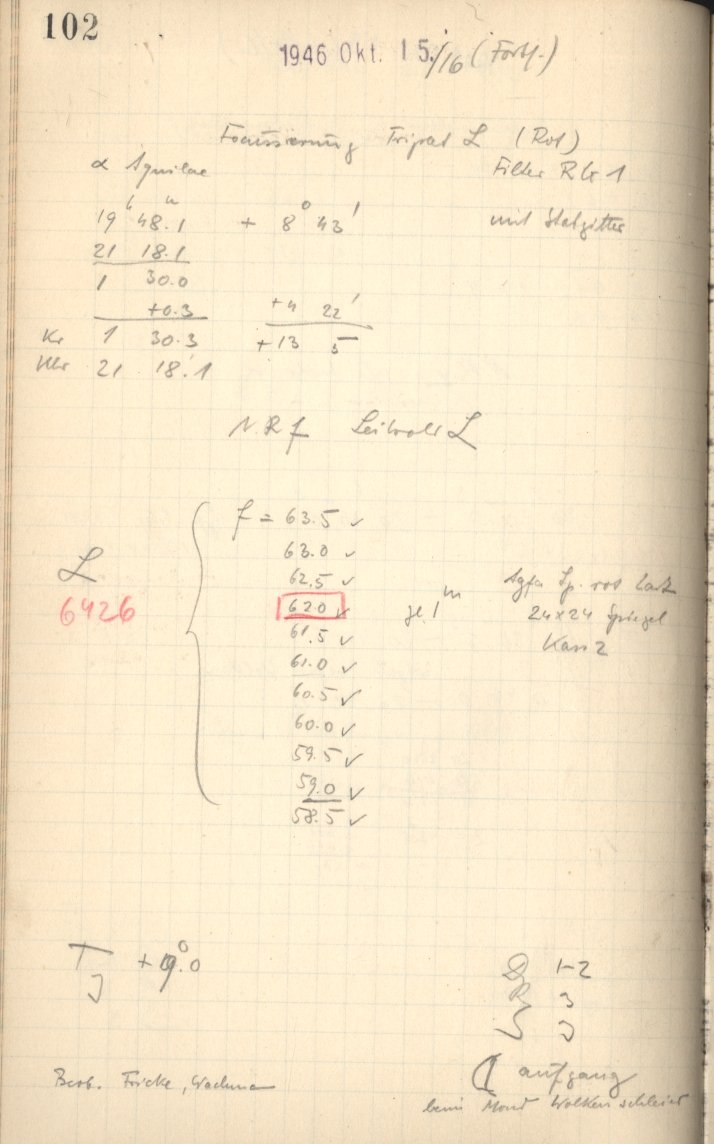 102
1946 Okt. 15./16 (Forts.)
Focussierung Triplet L (Rot)
α Aquilae Filter RG 1
19 h 48.1 m + 8° 43' mit Stabgitter
21 18.1
1 30.0
+0.3 +4 22'
Kr 1 30.3 +13 5
Uhr 21 18.1
N.R.f. Leitrohr L
f = 63.5 ✓
63.0 ✓
L 62.5 ✓ Agfa Sp. rot
6426 62.0 ✓ je 1 m 24x24 Spiegel
61.5 ✓ Kass 2
61.0 ✓
60.5 ✓
60.0 ✓
59.5 ✓
59.0 ✓
58.5 ✓
T J +9°.0 1-2
R 3
S 3
☾ aufgang
Beob. Fricke, Wachmann beim Mond Wolkenschleier